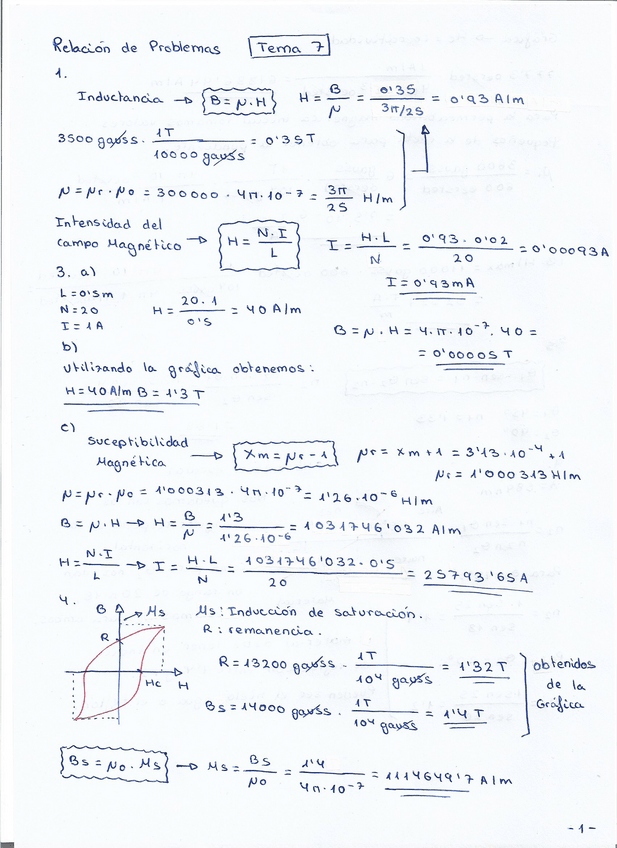 Relación de Problemas Tema 7
1.
Inductancia → B = μ·H H = B/μ = 0'35 / 3π/25 = 0'93 A/m
3500 gauss · 1T / 10000 gauss = 0'35T
μ = μr · μo = 300000 · 4π·10⁻⁷ = 3π/25 H/m
Intensidad del
campo Magnético → H = N·I / L I = H·L / N = 0'93·0'02 / 20 = 0'00093A
I = 0'93mA
3. a)
L = 0'5m
N = 20 H = 20·1 / 0'5 = 40 A/m
I = 1A
B = μ·H = 4·π·10⁻⁷·40 =
= 0'00005 T
b)
utilizando la gráfica obtenemos:
H = 40A/m B = 1'3 T
c)
Suceptibilidad
Magnética → Xm = μr - 1 μr = Xm + 1 = 3'13·10⁻⁴ + 1
μr = 1'000313 H/m
μ = μr·μo = 1'000313 · 4π·10⁻⁷ = 1'26·10⁻⁶ H/m
B = μ·H → H = B/μ = 1'3 / 1'26·10⁻⁶ = 1031746'032 A/m
H = N·I / L → I = H·L / N = 1031746'032·0'5 / 20 = 25793'65A
4.
B Ms Ms: Inducción de saturación.
R R: remanencia.
Hc H
R = 13200 gauss · 1T / 10⁴ gauss = 1'32 T
Bs = 14000 gauss · 1T / 10⁴ gauss = 1'4 T
obtenidos
de la
Gráfica
Bs = μo·Ms → Ms = Bs / μo = 1'4 / 4π·10⁻⁷ = 1114649'7 A/m
-1-